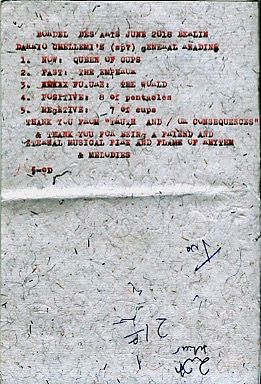 BORDEL DES ARTS JUNE 2018 BERLIN
(spy) GENERAL READING
1. NOW: QUEEN OF CUPS
2. PAST: THE EMPEROR
3. THE WORLD
4. POSITIVE: 8 of pentacles
5. 7 of cups
THANK YOU FROM "TRUTH AND / OR CONSEQUENCES"
& THANK YOU FOR BEING A FRIEND AND
ETERNAL MUSICAL FIRE AND FLAME OF RHYTHM
& MELODIES